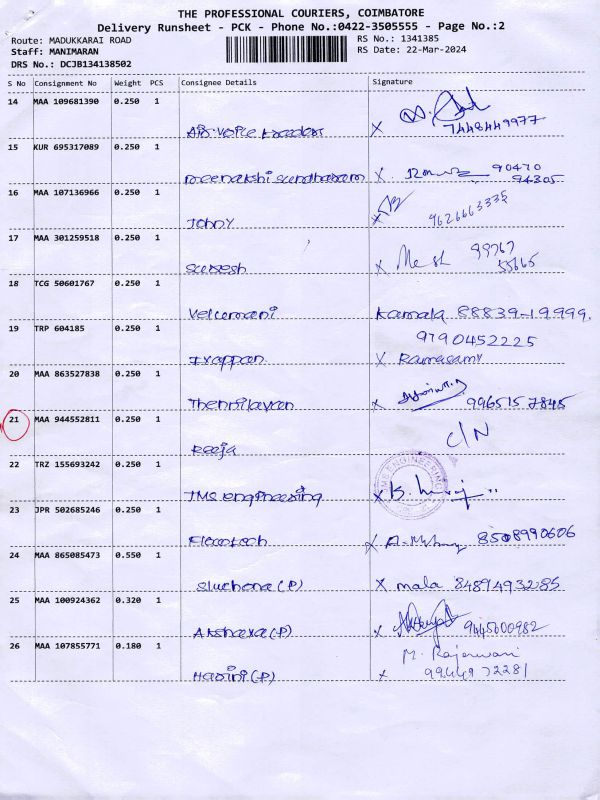 THE PROFESSIONAL COURIERS, COIMBATORE
Delivery Runsheet - PCK - Phone No.:0422-3505555 - Page No.:2
Route: MADUKKARAI ROAD
RS No.: 1341385
Staff: MANIMARAN
RS Date: 22-Mar-2024
DRS No.: DCJB134138502
S No Consignment No Weight PCS Consignee Details Signature
14 MAA 109681390 0.250 1
Air voice tradeer X 7448449977
15 KUR 695317089 0.250 1
meenakshi sundharam X 90470
94305
16 MAA 107136966 0.250 1
Johny X 9626663335
17 MAA 301259518 0.250 1
Suresh X 99767
55665
18 TCG 50601767 0.250 1
Velumani Kamala 88839-19999.
19 TRP 604185 0.250 1
9790452225
Irappan X Ramasamy
20 MAA 863527838 0.250 1
Thennilavan X 9965157845
21 MAA 944552811 0.250 1
C/N
Reeja
22 TRZ 155693242 0.250 1
TMS engineering X
23 JPR 502685246 0.250 1
Flowtech X 8508990606
24 MAA 865085473 0.550 1
(P) X mala 8489493285
25 MAA 100924362 0.320 1
Akshara (P) X 9445000982
26 MAA 107855771 0.180 1
M. Rajeswari
Harini (P) X 9944972281